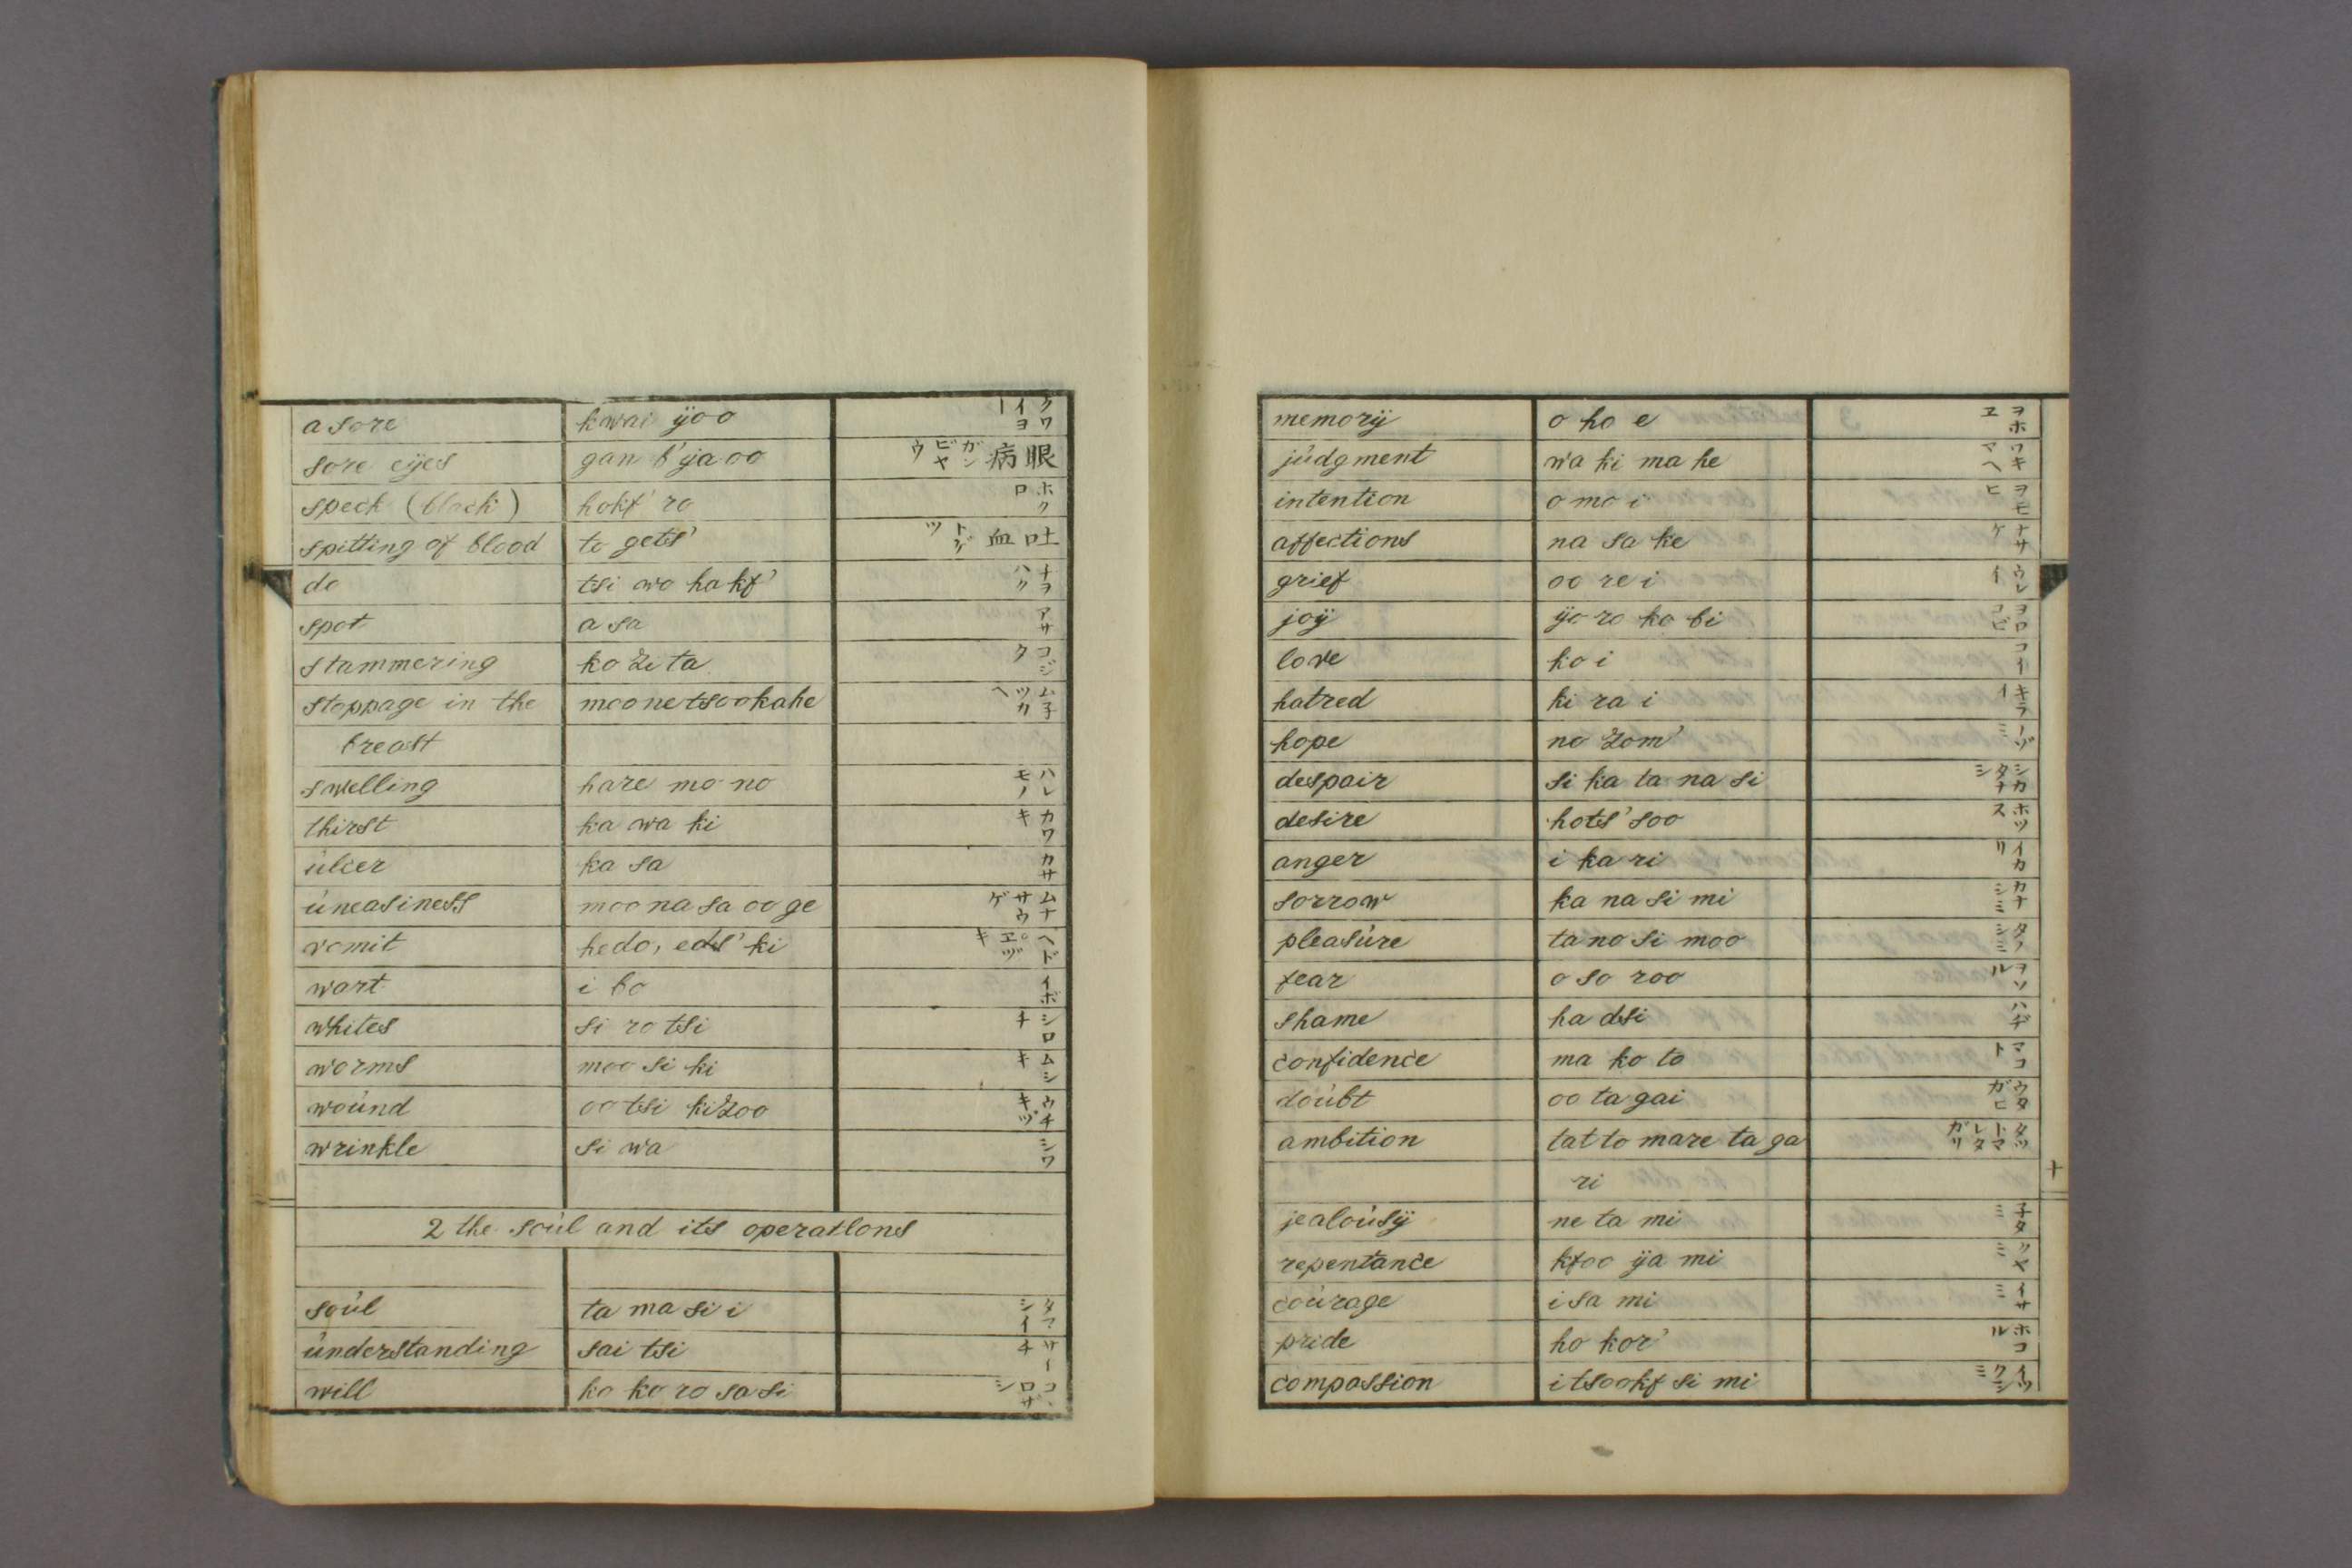 a sore kwai ÿoo クワイヨー
sore eÿes gan b'ÿa oo 眼病 ガンビヤウ
speck (black) hokf' ro ホクロ
spitting of blood to gets' 吐血 トゲツ
do tsi wo hakf' チヲハク
spot a sa アサ
stammering ko zi ta コジク
stoppage in the moo ne tsookahe ムネツカヘ
breast
swelling hare mo no ハレモノ
thirst ka wa ki カワキ
ùlcer ka sa カサ
ùneasiness moo na sa oo ge ムナサウゲ
vomit hedo, eds' ki ヘド。エヅキ
wart i bo イボ
whites si ro tsi シロチ
worms moo si ki ムシキ
woùnd oo tsi kizoo ウチキヅ
wrinkle si wa シワ
2 the soùl and its operations
soùl ta ma si i タマシイ
ùnderstanding sai tsi サイチ
will ko ko ro sa si コヽロザシ
memorÿ o ho e ヲホヱ
jùdgment wa ki ma he ワキマヘ
intention o mo i ヲモヒ
affections na sa ke ナサケ
grief oo re i ウレイ
joÿ ÿo ro ko bi ヨロコビ
love ko i コイ
hatred ki ra i キライ
hope no zom' ノゾミ
despair si ka ta na si シカタナシ
desire hots' soo ホツス
anger i ka ri イカリ
sorrow ka na si mi カナシミ
pleasùre ta no si moo タノシミ
fear o so roo ヲソル
shame ha dsi ハヂ
confidence ma ko to マコト
doùbt oo ta gai ウタガヒ
ambition tat to mare ta ga タツトマレタガリ
ri
jealoùsÿ ne ta mi ネタミ
repentance kfoo ÿa mi クヤミ
coùrage i sa mi イサミ
pride ho kor' ホコル
compassion i tsookf si mi イツクシミ
十